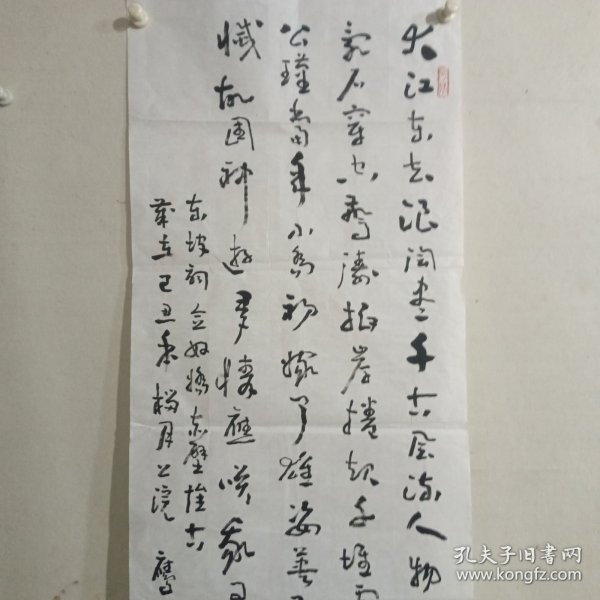 大江东去浪淘尽千古风流人物
乱石穿空惊涛拍岸捲起千堆雪
公瑾当年小乔初嫁了雄姿英
城故国神游多情应笑我
东坡词念奴娇赤壁怀古
岁在己丑年榴月
孔夫子旧书网
www.kongfz.com